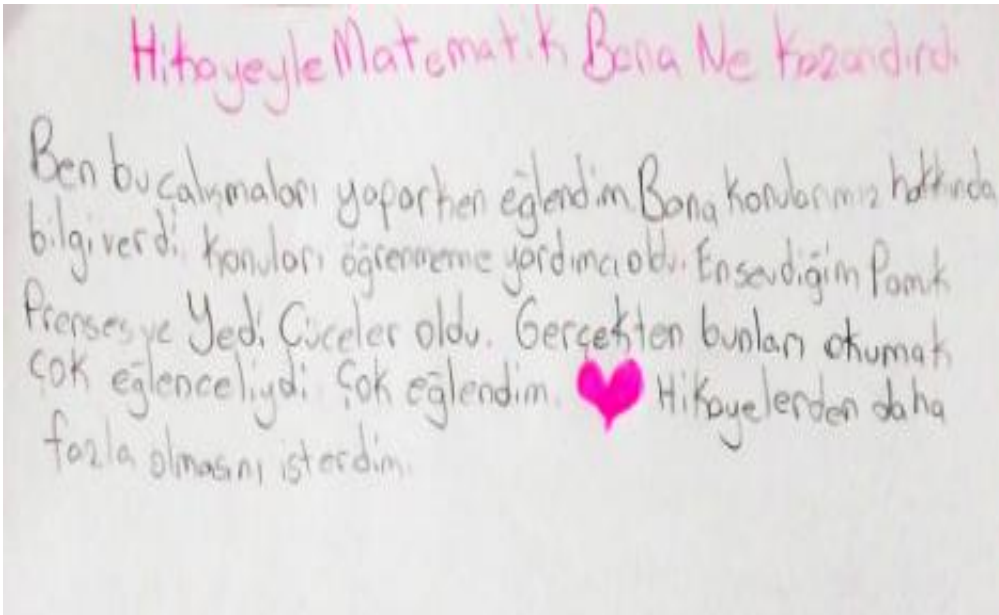 Hikayeyle Matematik Bana Ne Kazandırdı
Ben bu çalışmaları yaparken eğlendim. Bana konularımız hakkında
bilgi verdi. Konuları öğrenmeme yardımcı oldu. En sevdiğim Pamuk
Prenses ve Yedi Cüceler oldu. Gerçekten bunları okumak
çok eğlenceliydi. Çok eğlendim. Hikayelerden daha
fazla olmasını isterdim.